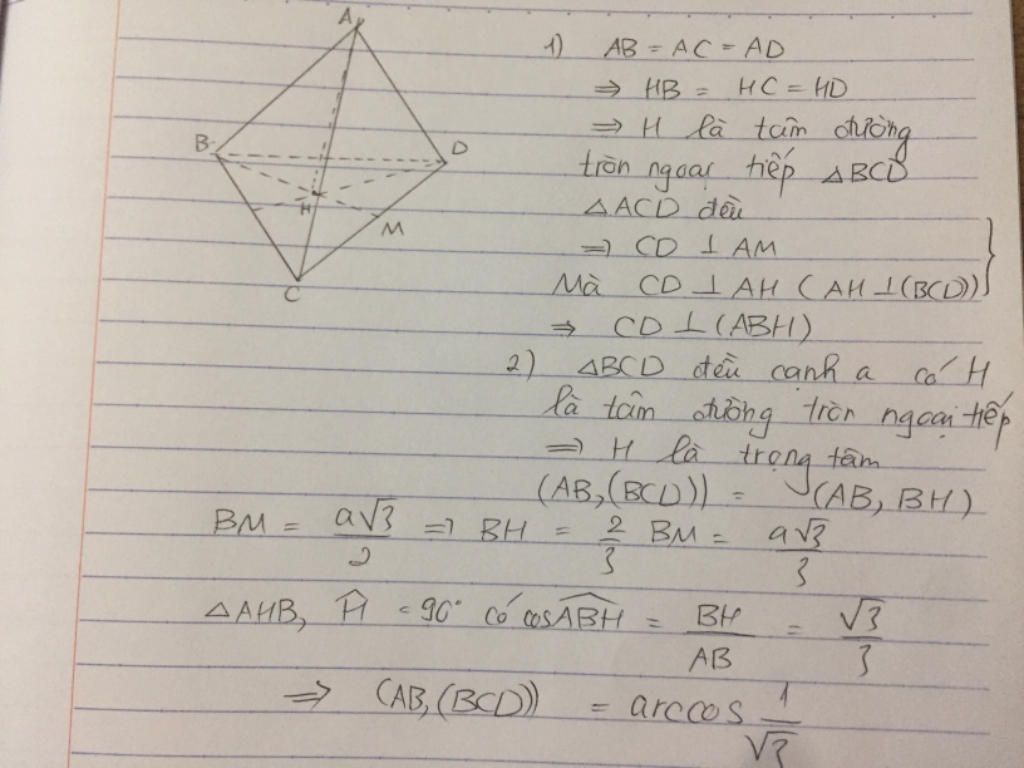 A
B
D
H
M
C
1) AB = AC = AD
⇒ HB = HC = HD
⇒ H là tâm đường
tròn ngoại tiếp △BCD
△ACD đều
⇒ CD ⊥ AM
Mà CD ⊥ AH (AH ⊥ (BCD))
⇒ CD ⊥ (ABH)
2) △BCD đều cạnh a có H
là tâm đường tròn ngoại tiếp
⇒ H là trọng tâm
(AB, (BCD)) = (AB, BH)
BM = a√3/2 ⇒ BH = 2/3 BM = a√3/3
△AHB, Ĥ = 90° có cos ABH = BH/AB = √3/3
⇒ (AB, (BCD)) = arccos 1/√3